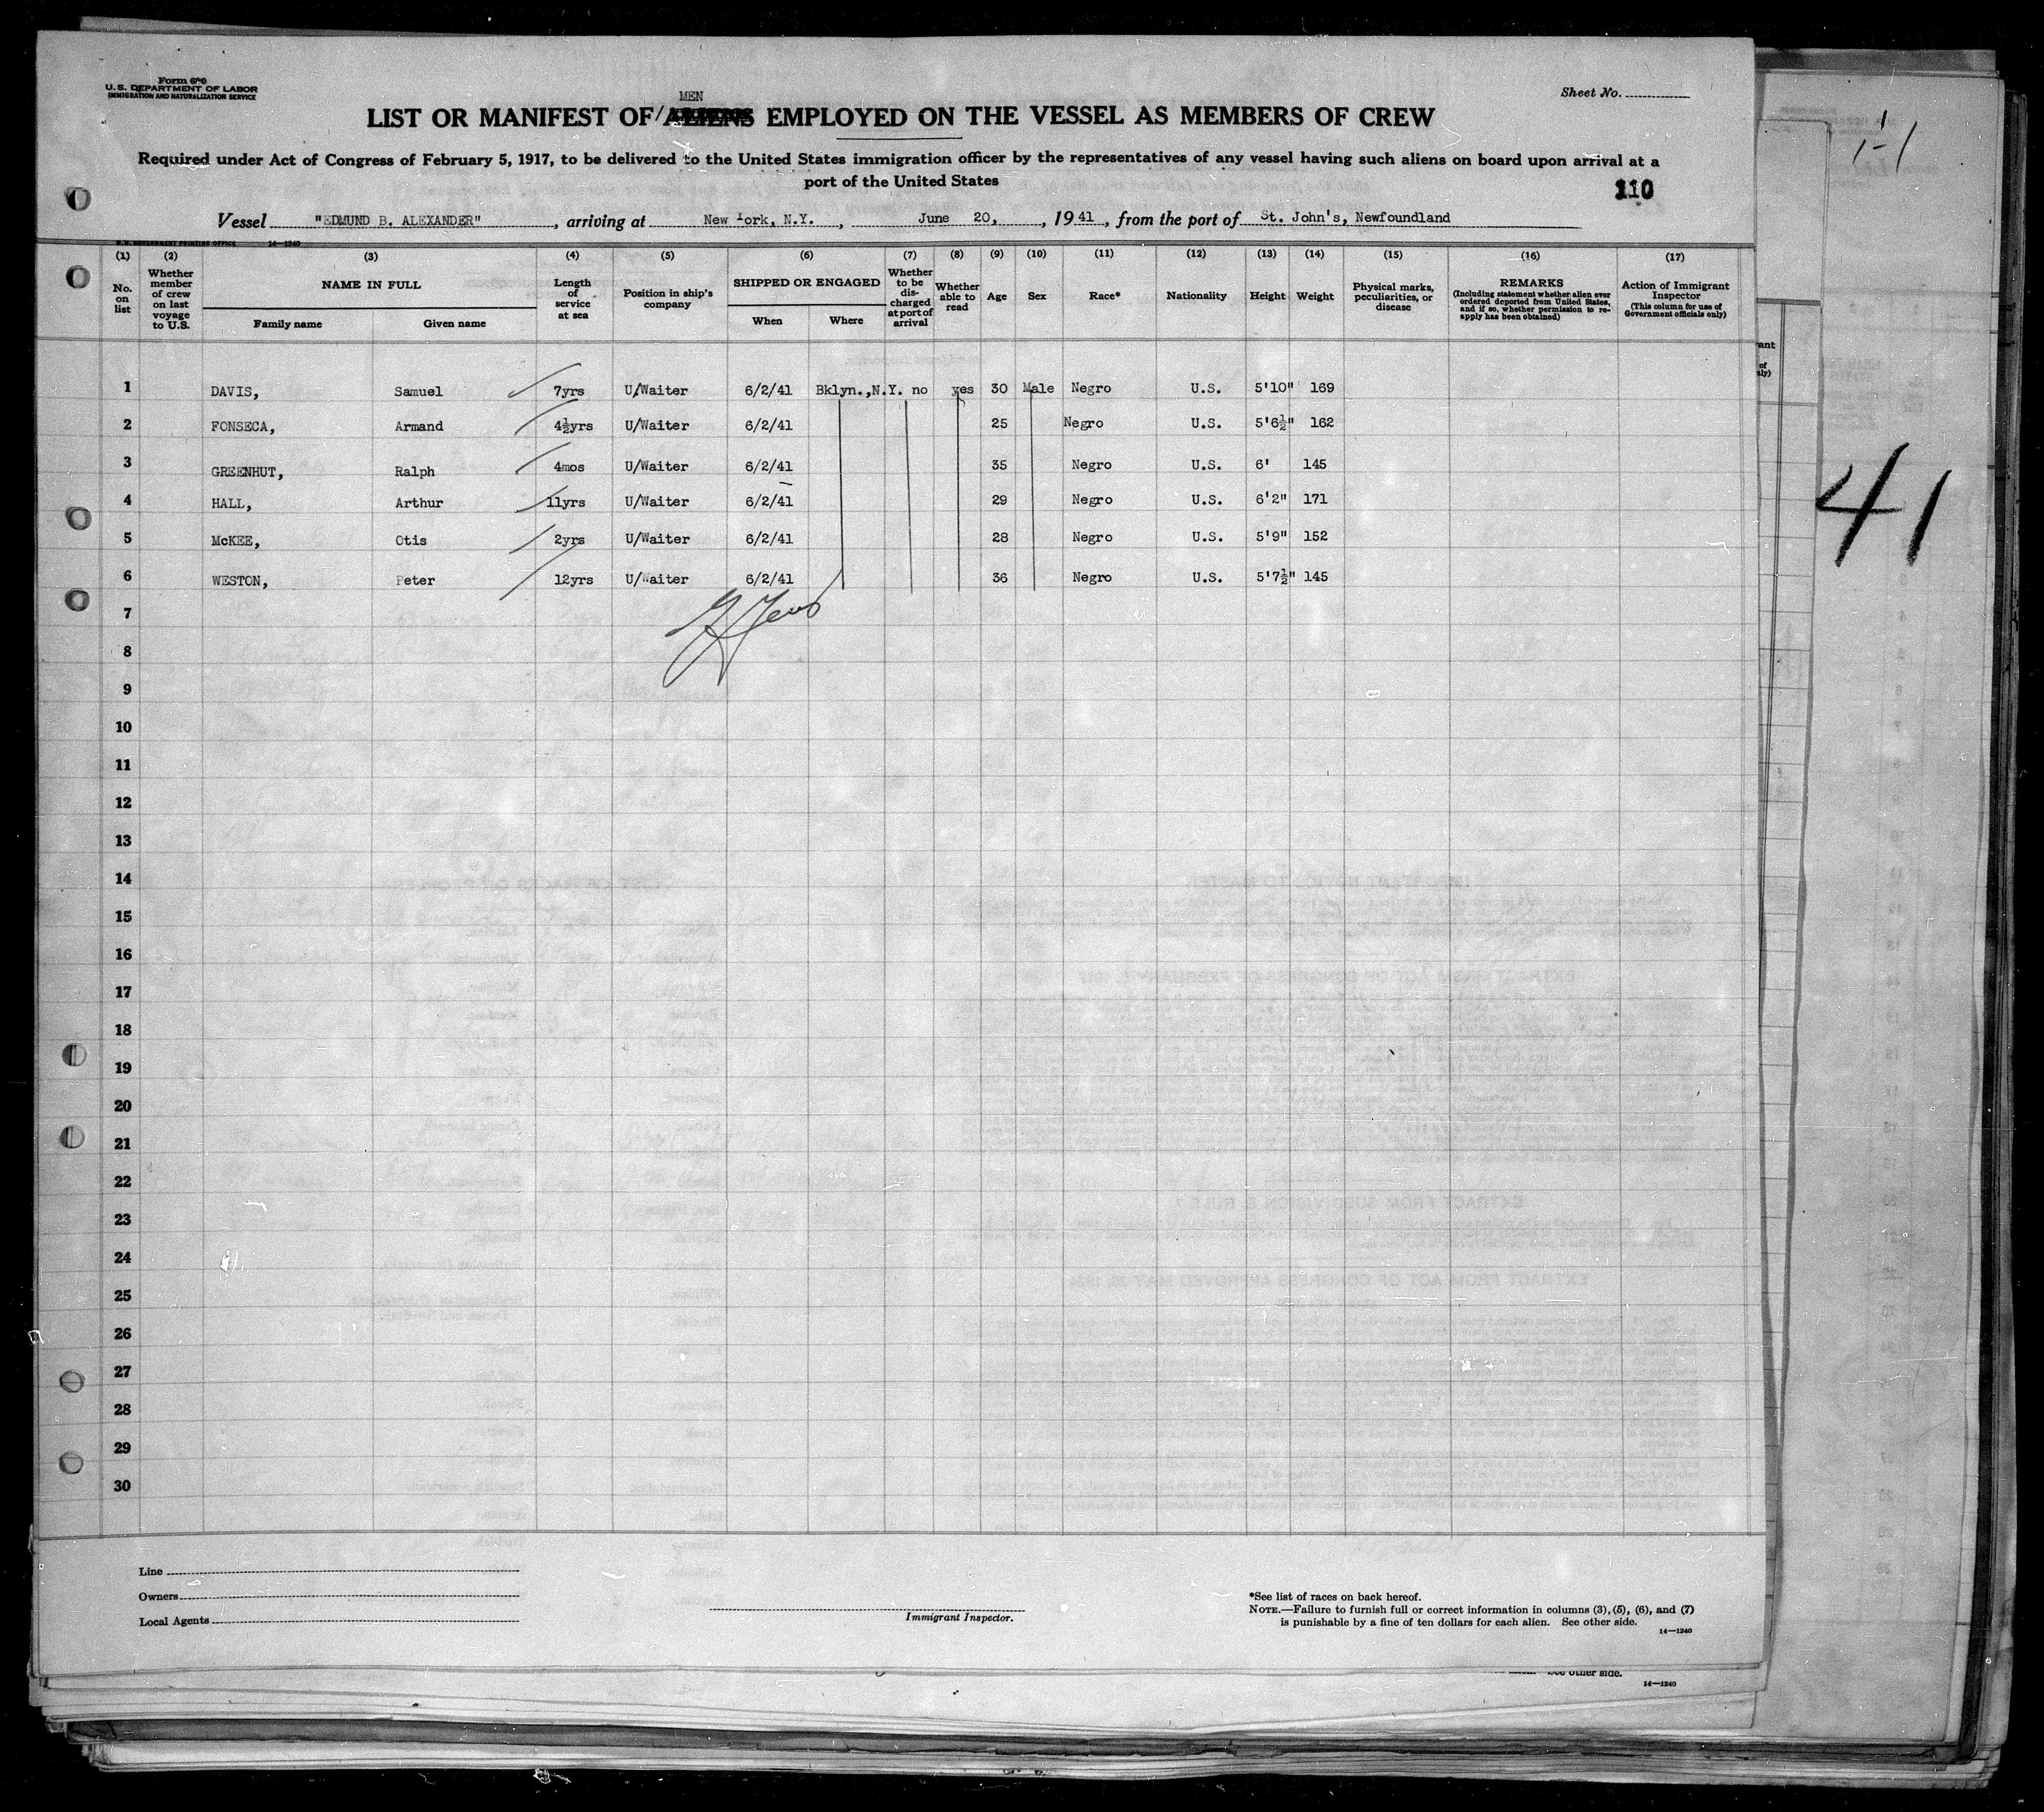 Form 680
U. S. DEPARTMENT OF LABOR
IMMIGRATION AND NATURALIZATION SERVICE
Sheet No.
MEN
LIST OR MANIFEST OF / ALIENS EMPLOYED ON THE VESSEL AS MEMBERS OF CREW
Required under Act of Congress of February 5, 1917, to be delivered to the United States immigration officer by the representatives of any vessel having such aliens on board upon arrival at a
port of the United States
110
Vessel "EDMUND B. ALEXANDER", arriving at New York, N.Y., June 20, , 1941, from the port of St. John's, Newfoundland
U.S. GOVERNMENT PRINTING OFFICE 14—1240
(1) (2) (3) (4) (5) (6) (7) (8) (9) (10) (11) (12) (13) (14) (15) (16) (17)
No. on list
Whether member of crew on last voyage to U.S.
NAME IN FULL
Family name
Given name
Length of service at sea
Position in ship's company
SHIPPED OR ENGAGED
When
Where
Whether to be discharged at port of arrival
Whether able to read
Age
Sex
Race*
Nationality
Height
Weight
Physical marks, peculiarities, or disease
REMARKS
(Including statement whether alien ever ordered deported from United States, and if so, whether permission to reapply has been obtained)
Action of Immigrant Inspector
(This column for use of Government officials only)
1 DAVIS, Samuel 7yrs U/Waiter 6/2/41 Bklyn.,N.Y. no yes 30 Male Negro U.S. 5'10" 169
2 FONSECA, Armand 4½yrs U/Waiter 6/2/41 25 Negro U.S. 5'6½" 162
3 GREENHUT, Ralph 4mos U/Waiter 6/2/41 35 Negro U.S. 6' 145
4 HALL, Arthur 11yrs U/Waiter 6/2/41 29 Negro U.S. 6'2" 171
5 McKEE, Otis 2yrs U/Waiter 6/2/41 28 Negro U.S. 5'9" 152
6 WESTON, Peter 12yrs U/Waiter 6/2/41 36 Negro U.S. 5'7½" 145
7
8
9
10
11
12
13
14
15
16
17
18
19
20
21
22
23
24
25
26
27
28
29
30
41
Line
Owners
Local Agents
Immigrant Inspector.
*See list of races on back hereof.
NOTE.—Failure to furnish full or correct information in columns (3), (5), (6), and (7)
is punishable by a fine of ten dollars for each alien. See other side.
14—1240
See other side.
14—1240